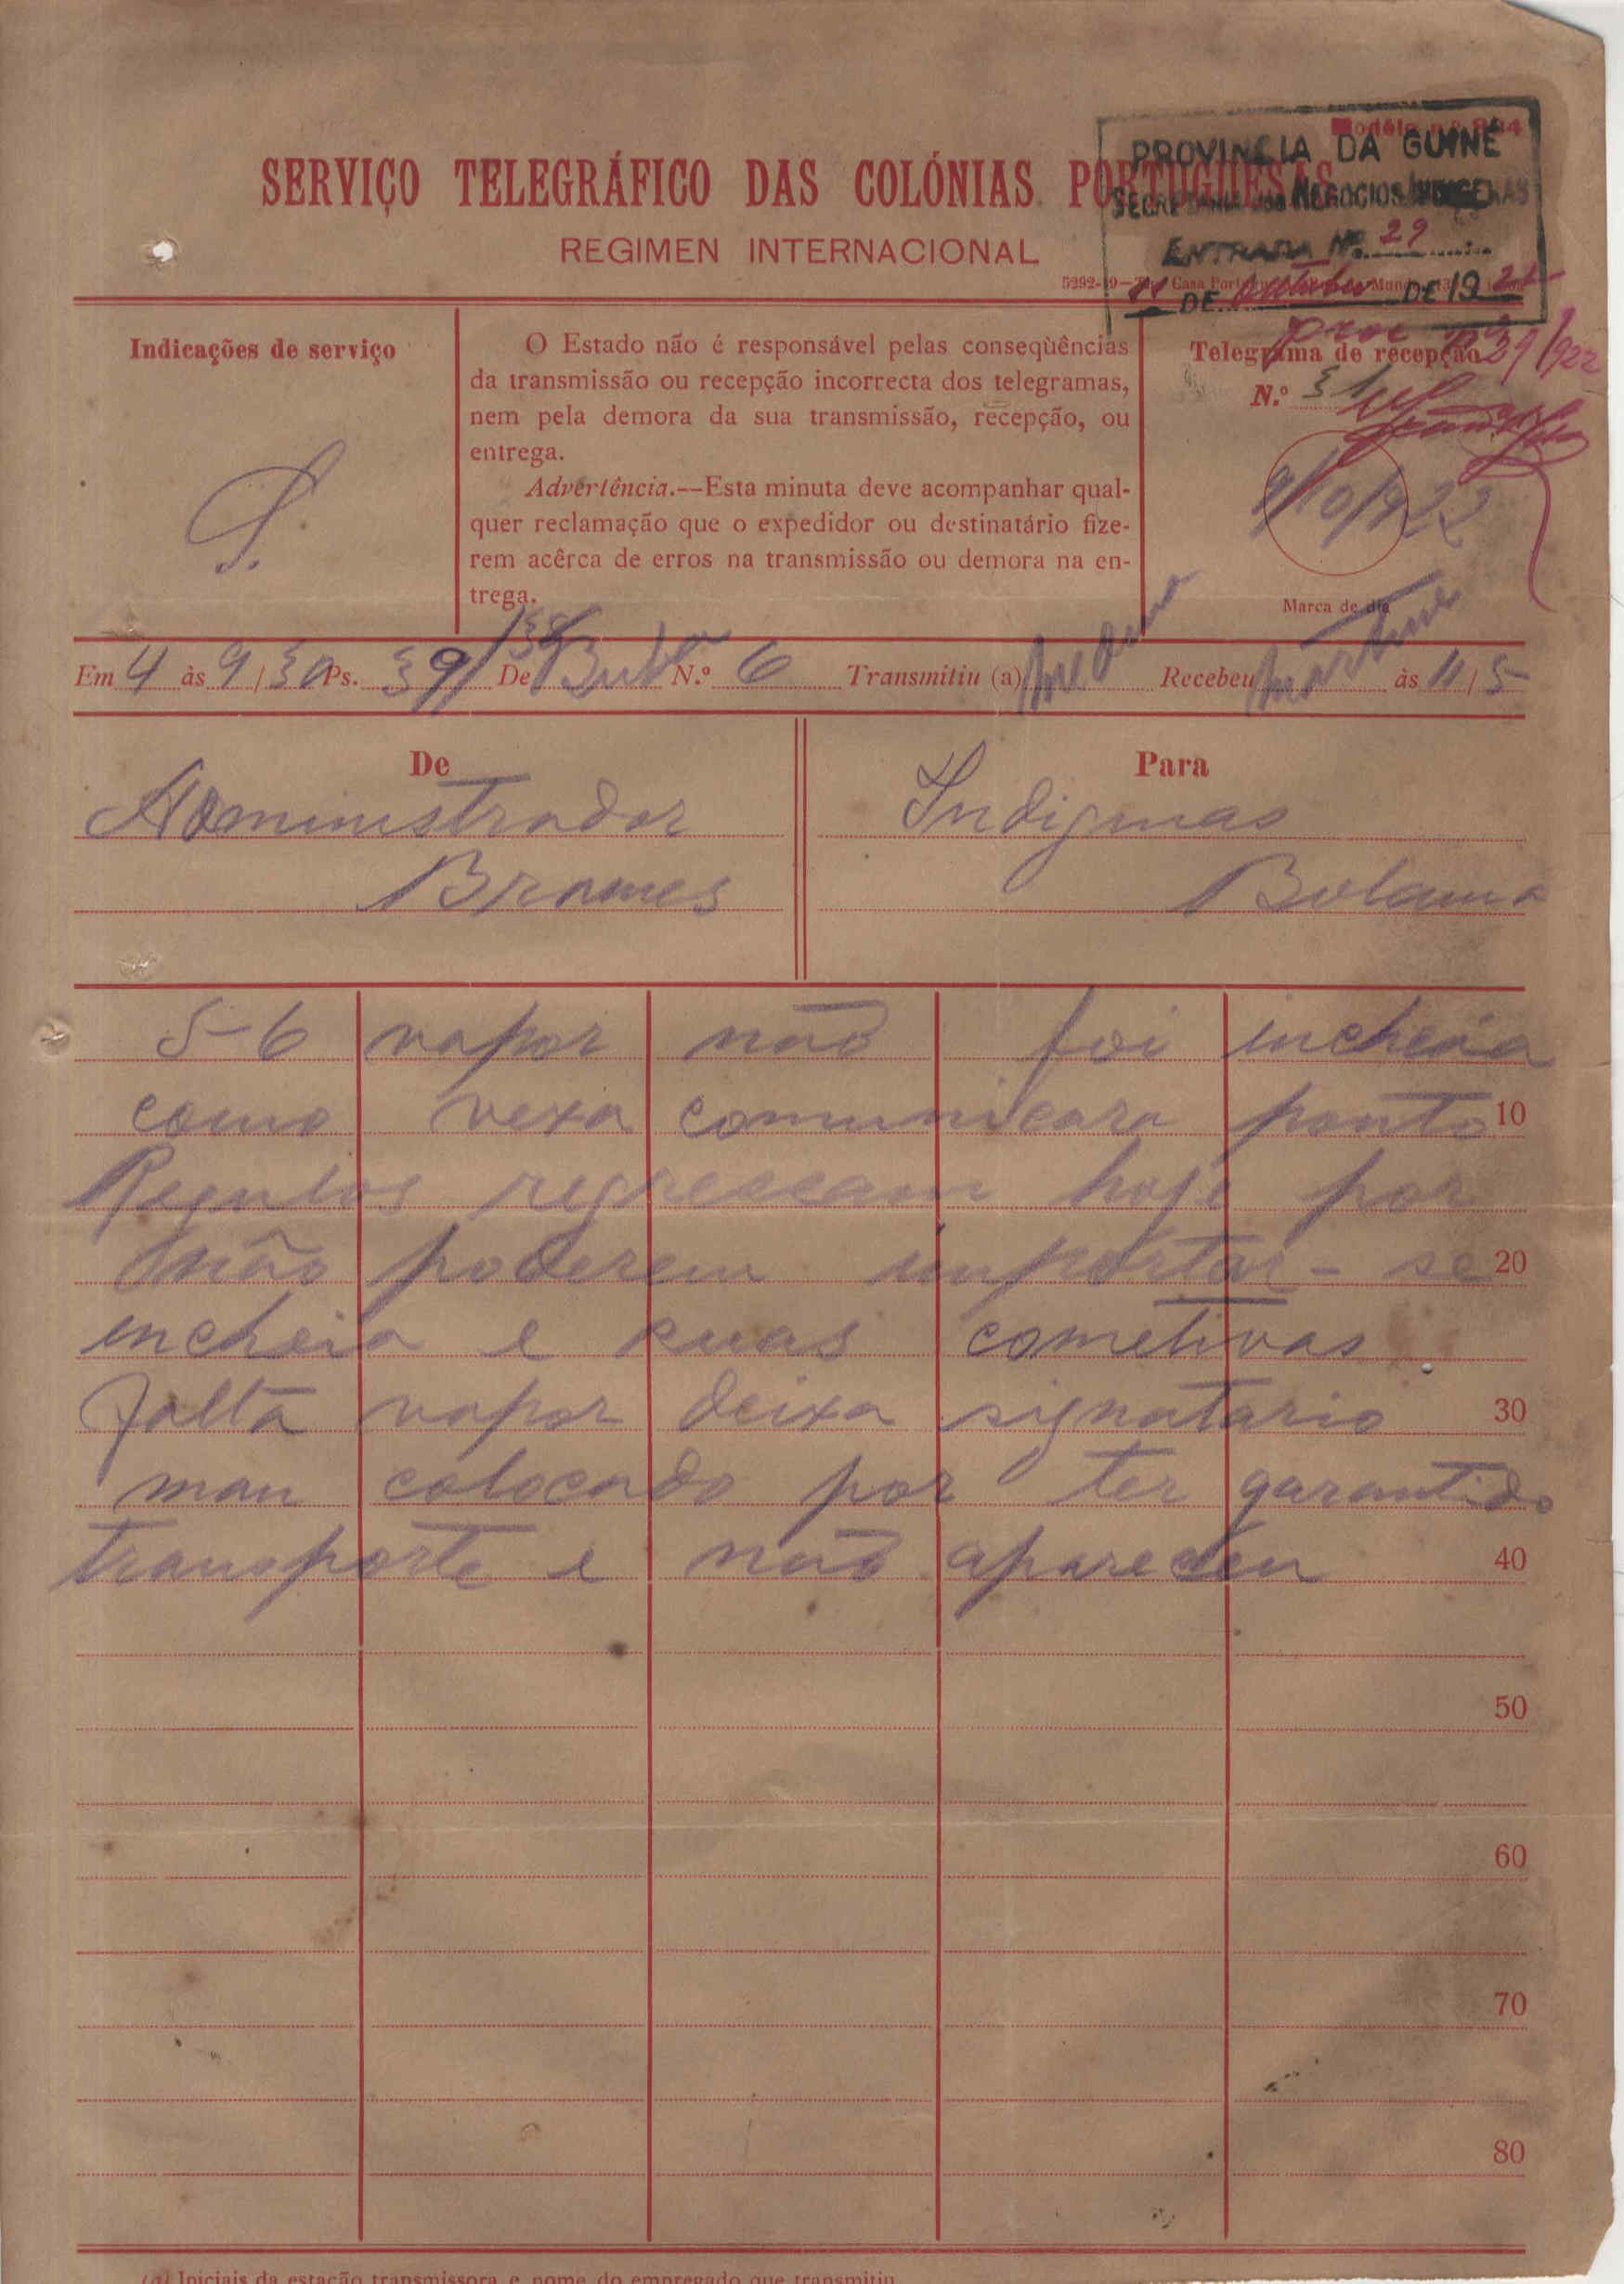 Modêlo n.º
SERVIÇO TELEGRÁFICO DAS COLÓNIAS PORTUGUESAS
REGIMEN INTERNACIONAL
PROVINCIA DA GUINÉ
SECRETARIA DOS NEGOCIOS INDIGENAS
ENTRADA Nº. 29
11 DE outubro DE 1922
Indicações de serviço
S.
O Estado não é responsável pelas conseqùências
da transmissão ou recepção incorrecta dos telegramas,
nem pela demora da sua transmissão, recepção, ou
entrega.
Advertência.—Esta minuta deve acompanhar qual-
quer reclamação que o expedidor ou destinatário fize-
rem acêrca de erros na transmissão ou demora na en-
trega.
Proc nº 39/922
Telegrama de recepção
N.º 31
9/10/922
Marca de dia
Em 4 às 9/30 Ps. 39/138 De N.º 6 Transmitiu (a) Recebeu Martins às 11/5
De
Administrador
Brames
Para
Indigenas
Bolama
5-6 vapor não foi incheia
como vexa comunicara ponto 10
Regulos regressam hoje por
não poderem importar-se 20
incheia e suas cometivas
falta vapor deixa signatario 30
mau colocado por ter garantido
transporte e não apareceu 40
50
60
70
80
(a) Iniciais da estação transmissora e nome do empregado que transmitiu